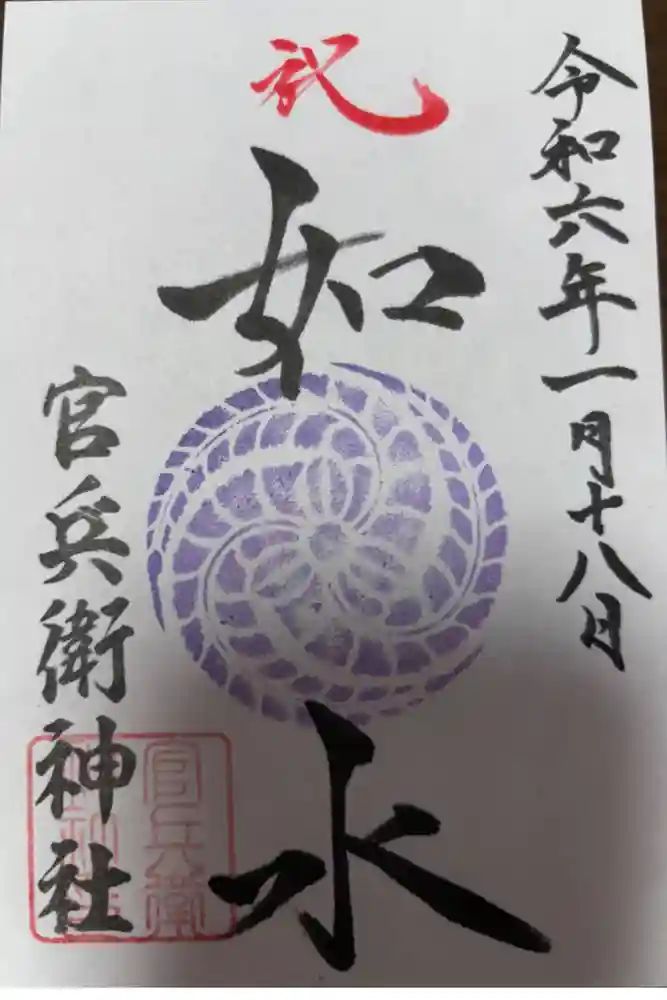 令和六年一月十八日
祝
如水
官兵衛神社
官兵衛
神社